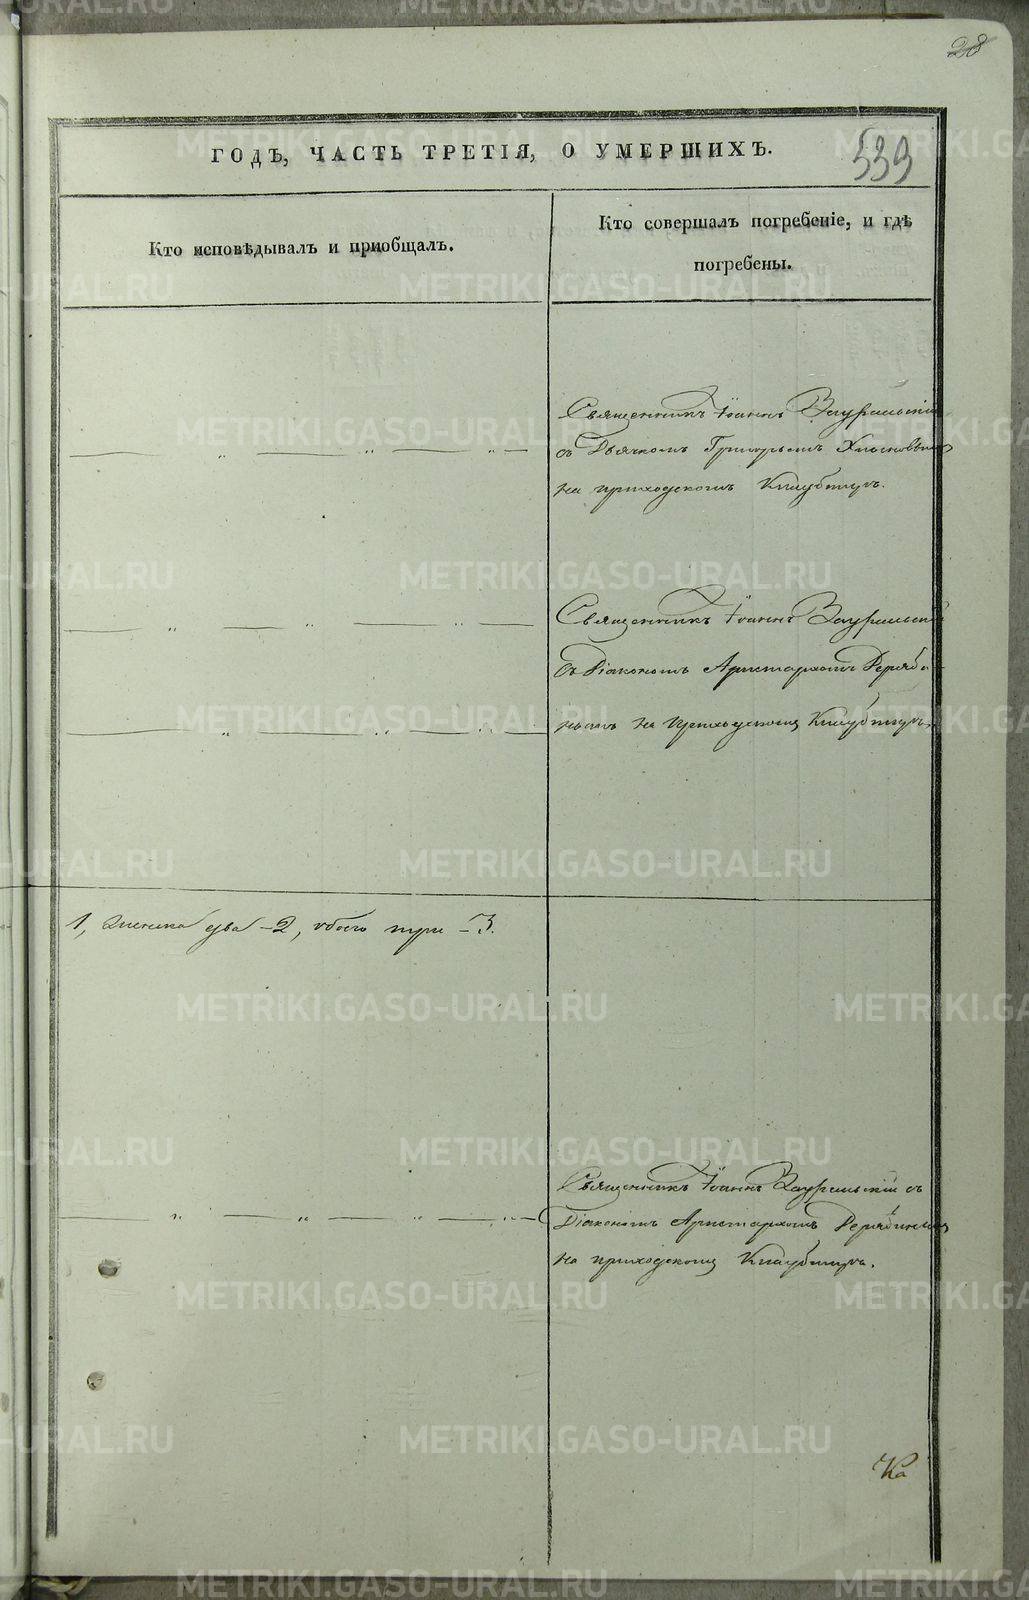 28
ГОДЪ, ЧАСТЬ ТРЕТІЯ, О УМЕРШИХЪ.
539
Кто исповѣдывалъ и пріобщалъ.
Кто совершалъ погребеніе, и гдѣ
погребены.
Священникъ Іоаннъ Зауральскій
съ Дьячкомъ Григорьемъ
на приходскомъ Кладбищѣ.
Священникъ Іоаннъ Зауральскій
съ Діакономъ Аристархомъ Дерябо-
нымъ на Приходскомъ Кладбищѣ.
1, женска два - 2, обоего три - 3.
Священникъ Іоаннъ Зауральскій съ
Діакономъ Аристархомъ Дерябинымъ
на приходскомъ Кладбищѣ.
Ка
METRIKI.GASO-URAL.RU